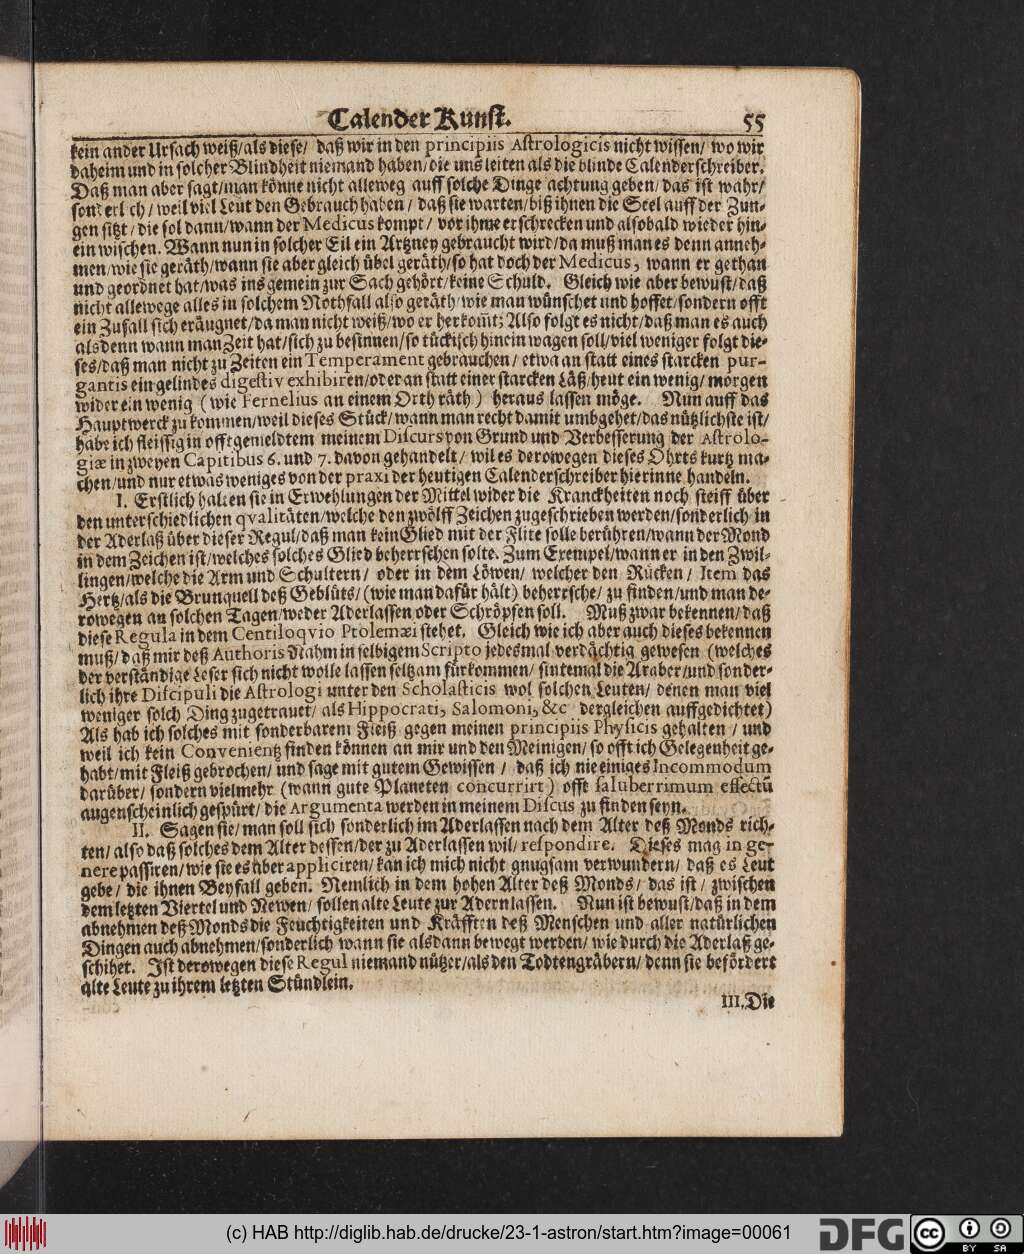 Calender Kunst. 55
kein ander Ursach weiß/als diese/ daß wir in den principiis Astrologicis nicht wissen/ wo wir
daheim und in solcher Blindheit niemand haben/die uns leiten als die blinde Calenderschreiber.
Daß man aber sagt/man könne nicht alleweg auff solche Dinge achtung geben/das ist wahr/
sonderlich/weil viel Leut den Gebrauch haben/ daß sie warten/biß ihnen die Seel auff der Zun-
gen sitzt/die sol dann/wann der Medicus kompt/ vor ihme erschrecken und alsobald wieder hin-
ein wischen. Wann nun in solcher Eil ein Artzney gebraucht wird/da muß man es denn anneh-
men/wie sie geräth/wann sie aber gleich übel geräth/so hat doch der Medicus, wann er gethan
und geordnet hat/was ins gemein zur Sach gehört/keine Schuld. Gleich wie aber bewust/daß
nicht allewege alles in solchem Nothfall also geräth/wie man wünschet und hoffet/sondern offt
ein Zufall sich eräugnet/da man nicht weiß/wo er herkom̃t; Also folgt es nicht/daß man es auch
alsdenn wann man Zeit hat/sich zu besinnen/so tückisch hinein wagen soll/viel weniger folgt die-
ses/daß man nicht zu Zeiten ein Temperament gebrauchen/ etwa an statt eines starcken pur-
gantis ein gelindes digestiv exhibiren/oder an statt einer starcken Läß/heut ein wenig/ morgen
wider ein wenig (wie Fernelius an einem Orth räth) heraus lassen möge. Nun auff das
Hauptwerck zu kommen/weil dieses Stück/wann man recht damit umbgehet/das nützlichste ist/
habe ich fleissig in offtgemeldtem meinem Discurs von Grund und Verbesserung der Astrolo-
giæ in zweyen Capitibus 6. und 7. davon gehandelt/ wil es derowegen dieses Ohrts kurtz ma-
chen/und nur etwas weniges von der praxi der heutigen Calenderschreiber hierinne handeln.
I. Erstlich halten sie in Erwehlungen der Mittel wider die Kranckheiten noch steiff über
den unterschiedlichen qvalitäten/welche den zwölff Zeichen zugeschrieben werden/sonderlich in
der Aderlaß über dieser Regul/daß man kein Glied mit der Flite solle berühren/wann der Mond
in dem Zeichen ist/welches solches Glied beherrschen solte. Zum Exempel/wann er in den Zwil-
lingen/welche die Arm und Schultern/ oder in dem Löwen/ welcher den Rücken/ Item das
Hertz/als die Brunquell deß Geblüts/(wie man dafür hält) beherrsche/ zu finden/und man de-
rowegen an solchen Tagen/weder Aderlassen oder Schröpfen soll. Muß zwar bekennen/daß
diese Regula in dem Centiloqvio Ptolemæi stehet. Gleich wie ich aber auch dieses bekennen
muß/daß mir deß Authoris Nahm in selbigem Scripto jedesmal verdächtig gewesen (welches
der verständige Leser sich nicht wolle lassen seltzam fürkommen/ sintemal die Araber/und sonder-
lich ihre Discipuli die Astrologi unter den Scholasticis wol solchen Leuten/ denen man viel
weniger solch Ding zugetrauet/als Hippocrati, Salomoni, &c dergleichen auffgedichtet)
Als hab ich solches mit sonderbarem Fleiß gegen meinen principiis Physicis gehalten/ und
weil ich kein Convenientz finden können an mir und den Meinigen/so offt ich Gelegenheit ge-
habt/mit Fleiß gebrochen/ und sage mit gutem Gewissen/ daß ich nie einiges Incommodum
darüber/sondern vielmehr (wann gute Planeten concurrirt) offt saluberrimum effectũ
augenscheinlich gespürt/die Argumenta werden in meinem Discus zu finden seyn.
II. Sagen sie/man soll sich sonderlich im Aderlassen nach dem Alter deß Monds rich-
ten/also daß solches dem Alter dessen/der zu Aderlassen wil/respondire. Dieses mag in ge-
nere passiren/wie sie es aber appliciren/kan ich mich nicht gnugsam verwundern/ daß es Leut
gebe/ die ihnen Beyfall geben. Nemlich in dem hohen Alter deß Monds/ das ist/ zwischen
dem letzten Viertel und Newen/sollen alte Leute zur Adern lassen. Nun ist bewust/daß in dem
abnehmen deß Monds die Feuchtigkeiten und Kräfften deß Menschen und aller natürlichen
Dingen auch abnehmen/sonderlich wann sie alsdann bewegt werden/ wie durch die Aderlaß ge-
schihet. Ist derowegen diese Regul niemand nützer/als den Todtengräbern/denn sie befördert
alte Leute zu ihrem letzten Stündlein.
III. Die
(c) HAB http://diglib.hab.de/drucke/23-1-astron/start.htm?image=00061 DFG cc BY SA